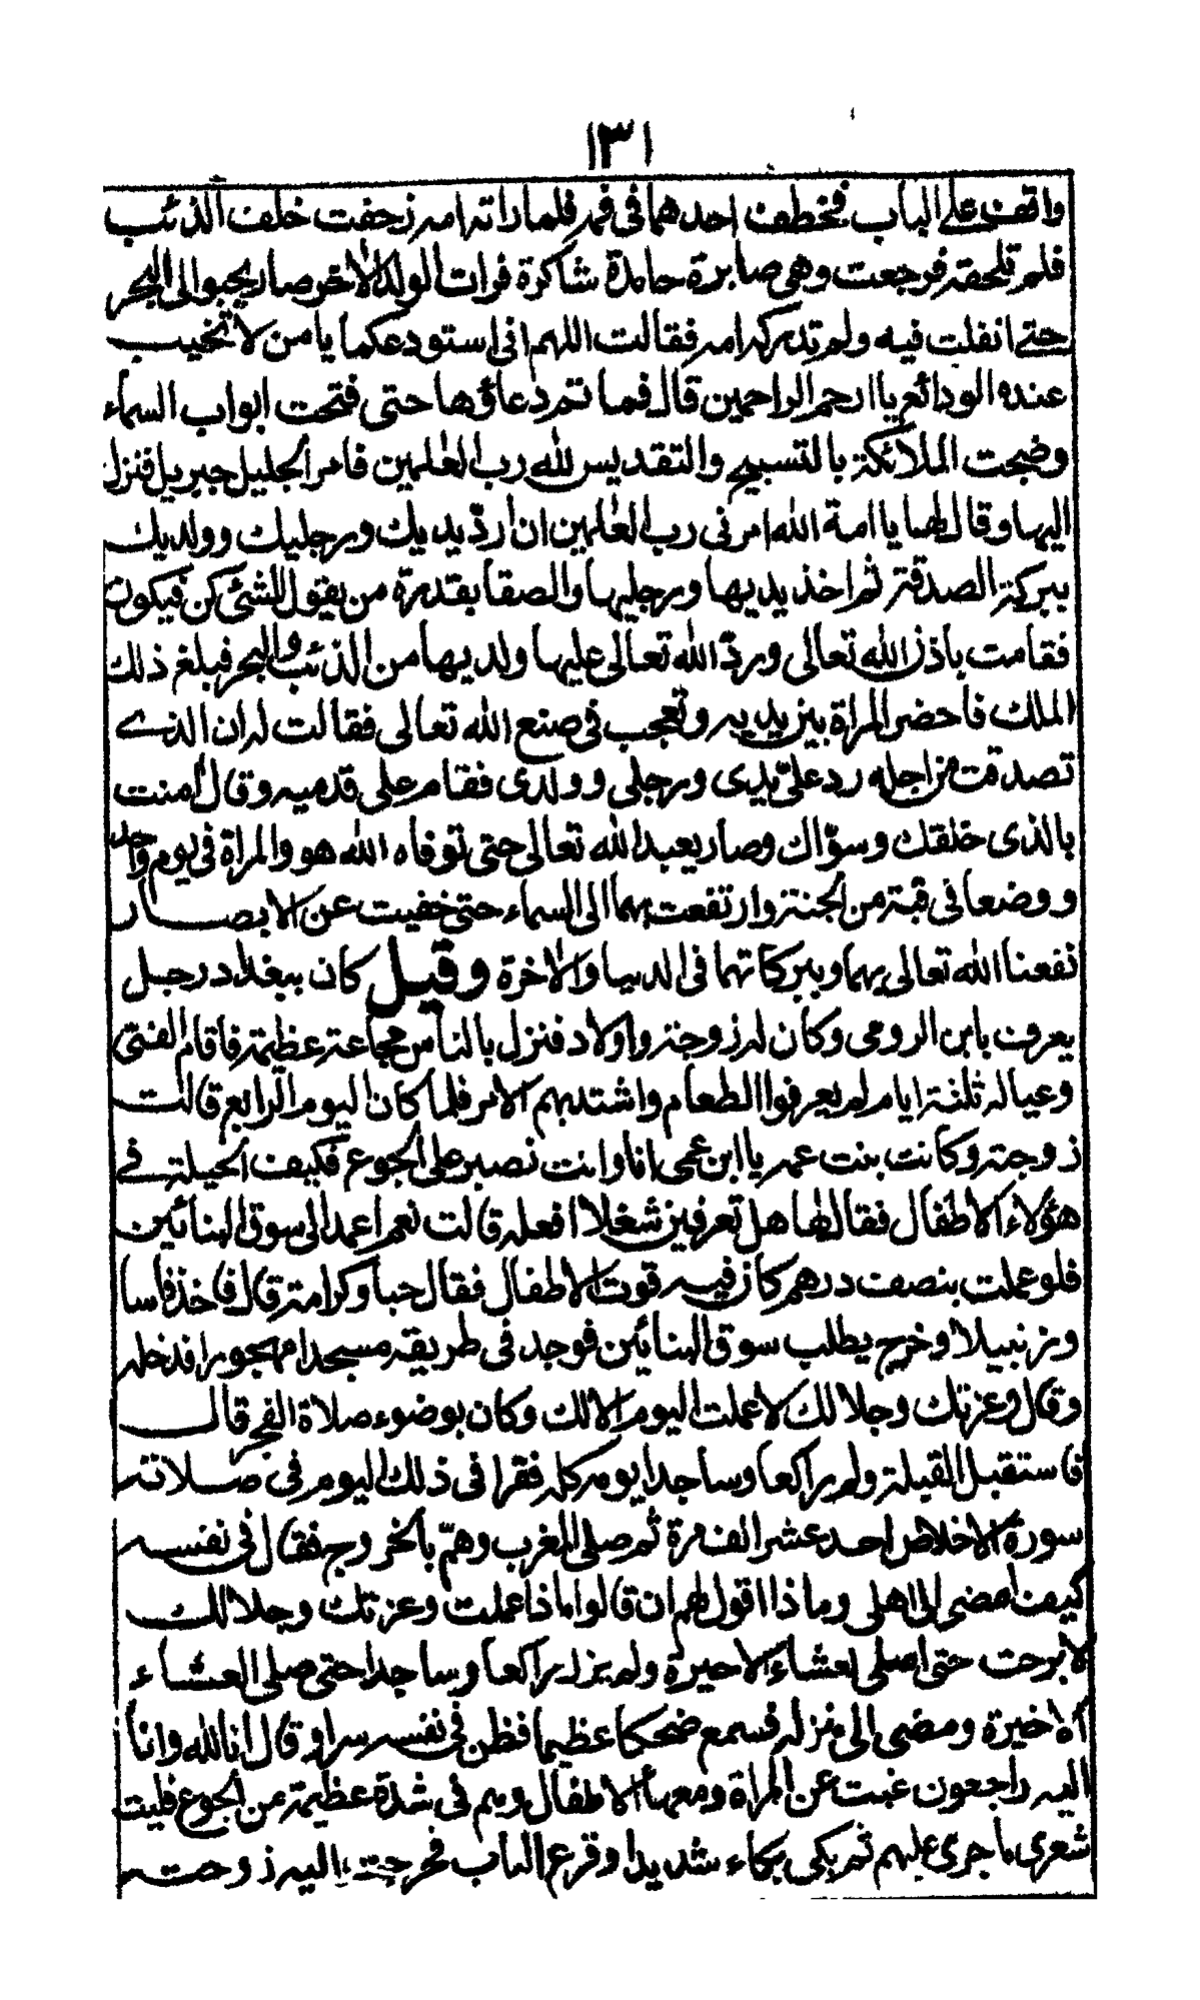 ١٣١
واقف على الباب فخطف احدهما فى فمه فلما راته امه زحفت خلف الذئب
فلم تلحقه فرجعت وهى صابرة حامدة شاكرة فرات الولد الاخر صار يحبو الى البحر
حتى انفلت فيه ولم تدركه امه فقالت اللهم انى استودعكما يا من لا تخيب
عنده الودائع يا ارحم الراحمين قال فما تم دعاؤها حتى فتحت ابواب السماء
وضجت الملائكة بالتسبيح والتقديس لله رب العلمين فامر الجليل جبريل فنزل
اليها وقال لها يا امة الله امرنى رب العلمين ان اردّ يديك ورجليك وولديك
ببركة الصدقة ثم اخذ يديها ورجليها والصقا بقدرة من يقول للشئ كن فيكون
فقامت باذن الله تعالى وردّ الله تعالى عليها ولديها من الذئب والبحر فبلغ ذلك
الملك فاحضر المراة بين يديه وتعجب فى صنع الله تعالى فقالت له ان الذى
تصدقت من اجله رد علىّ يدى ورجلى وولدى فقام على قدميه وقال امنت
بالذى خلقك وسوّاك وصار يعبد الله تعالى حتى توفاه الله هو والمراة فى يوم واحد
ووضعا فى قبة من الجنة وارتفعت بهما الى السماء حتى خفيت عن الابصار
نفعنا الله تعالى بهما وببركاتهما فى الدنيا والاخرة وقيل كان ببغداد رجل
يعرف بابن الرومى وكان له زوجة واولاد فنزل بالناس مجاعة عظيمة فاقام الفتى
وعياله ثلثة ايام لم يعرفوا الطعام واشتد بهم الامر فلما كان اليوم الرابع قالت
زوجته وكانت بنت عمه يا ابن عمى انا وانت نصبر على الجوع فكيف الحيلة فى
هؤلاء الاطفال فقال لها هل تعرفين شغلا افعله قالت نعم اعمد الى سوق البنائين
فلو عملت بنصف درهم كان فيه قوت الاطفال فقال حبا وكرامة قال فاخذ فاسا
وزنبيلا وخرج يطلب سوق البنائين فوجد فى طريقه مسجدا مهجورا فدخله
وقال وعزتك وجلالك لا عملت اليوم الا لك وكان بوضوء صلاة الفجر قال
فاستقبل القبلة ولم راكعا وساجدا يومه كله فقرا فى ذلك اليوم فى صلاته
سورة الاخلاص احد عشر الف مرة ثم صلى المغرب وهمّ بالخروج فقال فى نفسه
كيف امضى الى اهلى وماذا اقول لهم ان قالوا ماذا عملت وعزتك وجلالك
لا برحت حتى اصلى لعشاء الاخيرة ولم يزل راكعا وساجدا حتى صلى العشاء
الاخيرة ومضى الى منزله فسمع ضحكا عظيما فظن فى نفسه سرا وقال انا لله وانا
اليه راجعون غبت عن المراة ومعها الاطفال وهم فى شدة عظيمة من الجوع فليت
شعرى ما جرى عليهم ثم بكى بكاء شديدا وقرع الباب فخرجت اليه زوجته